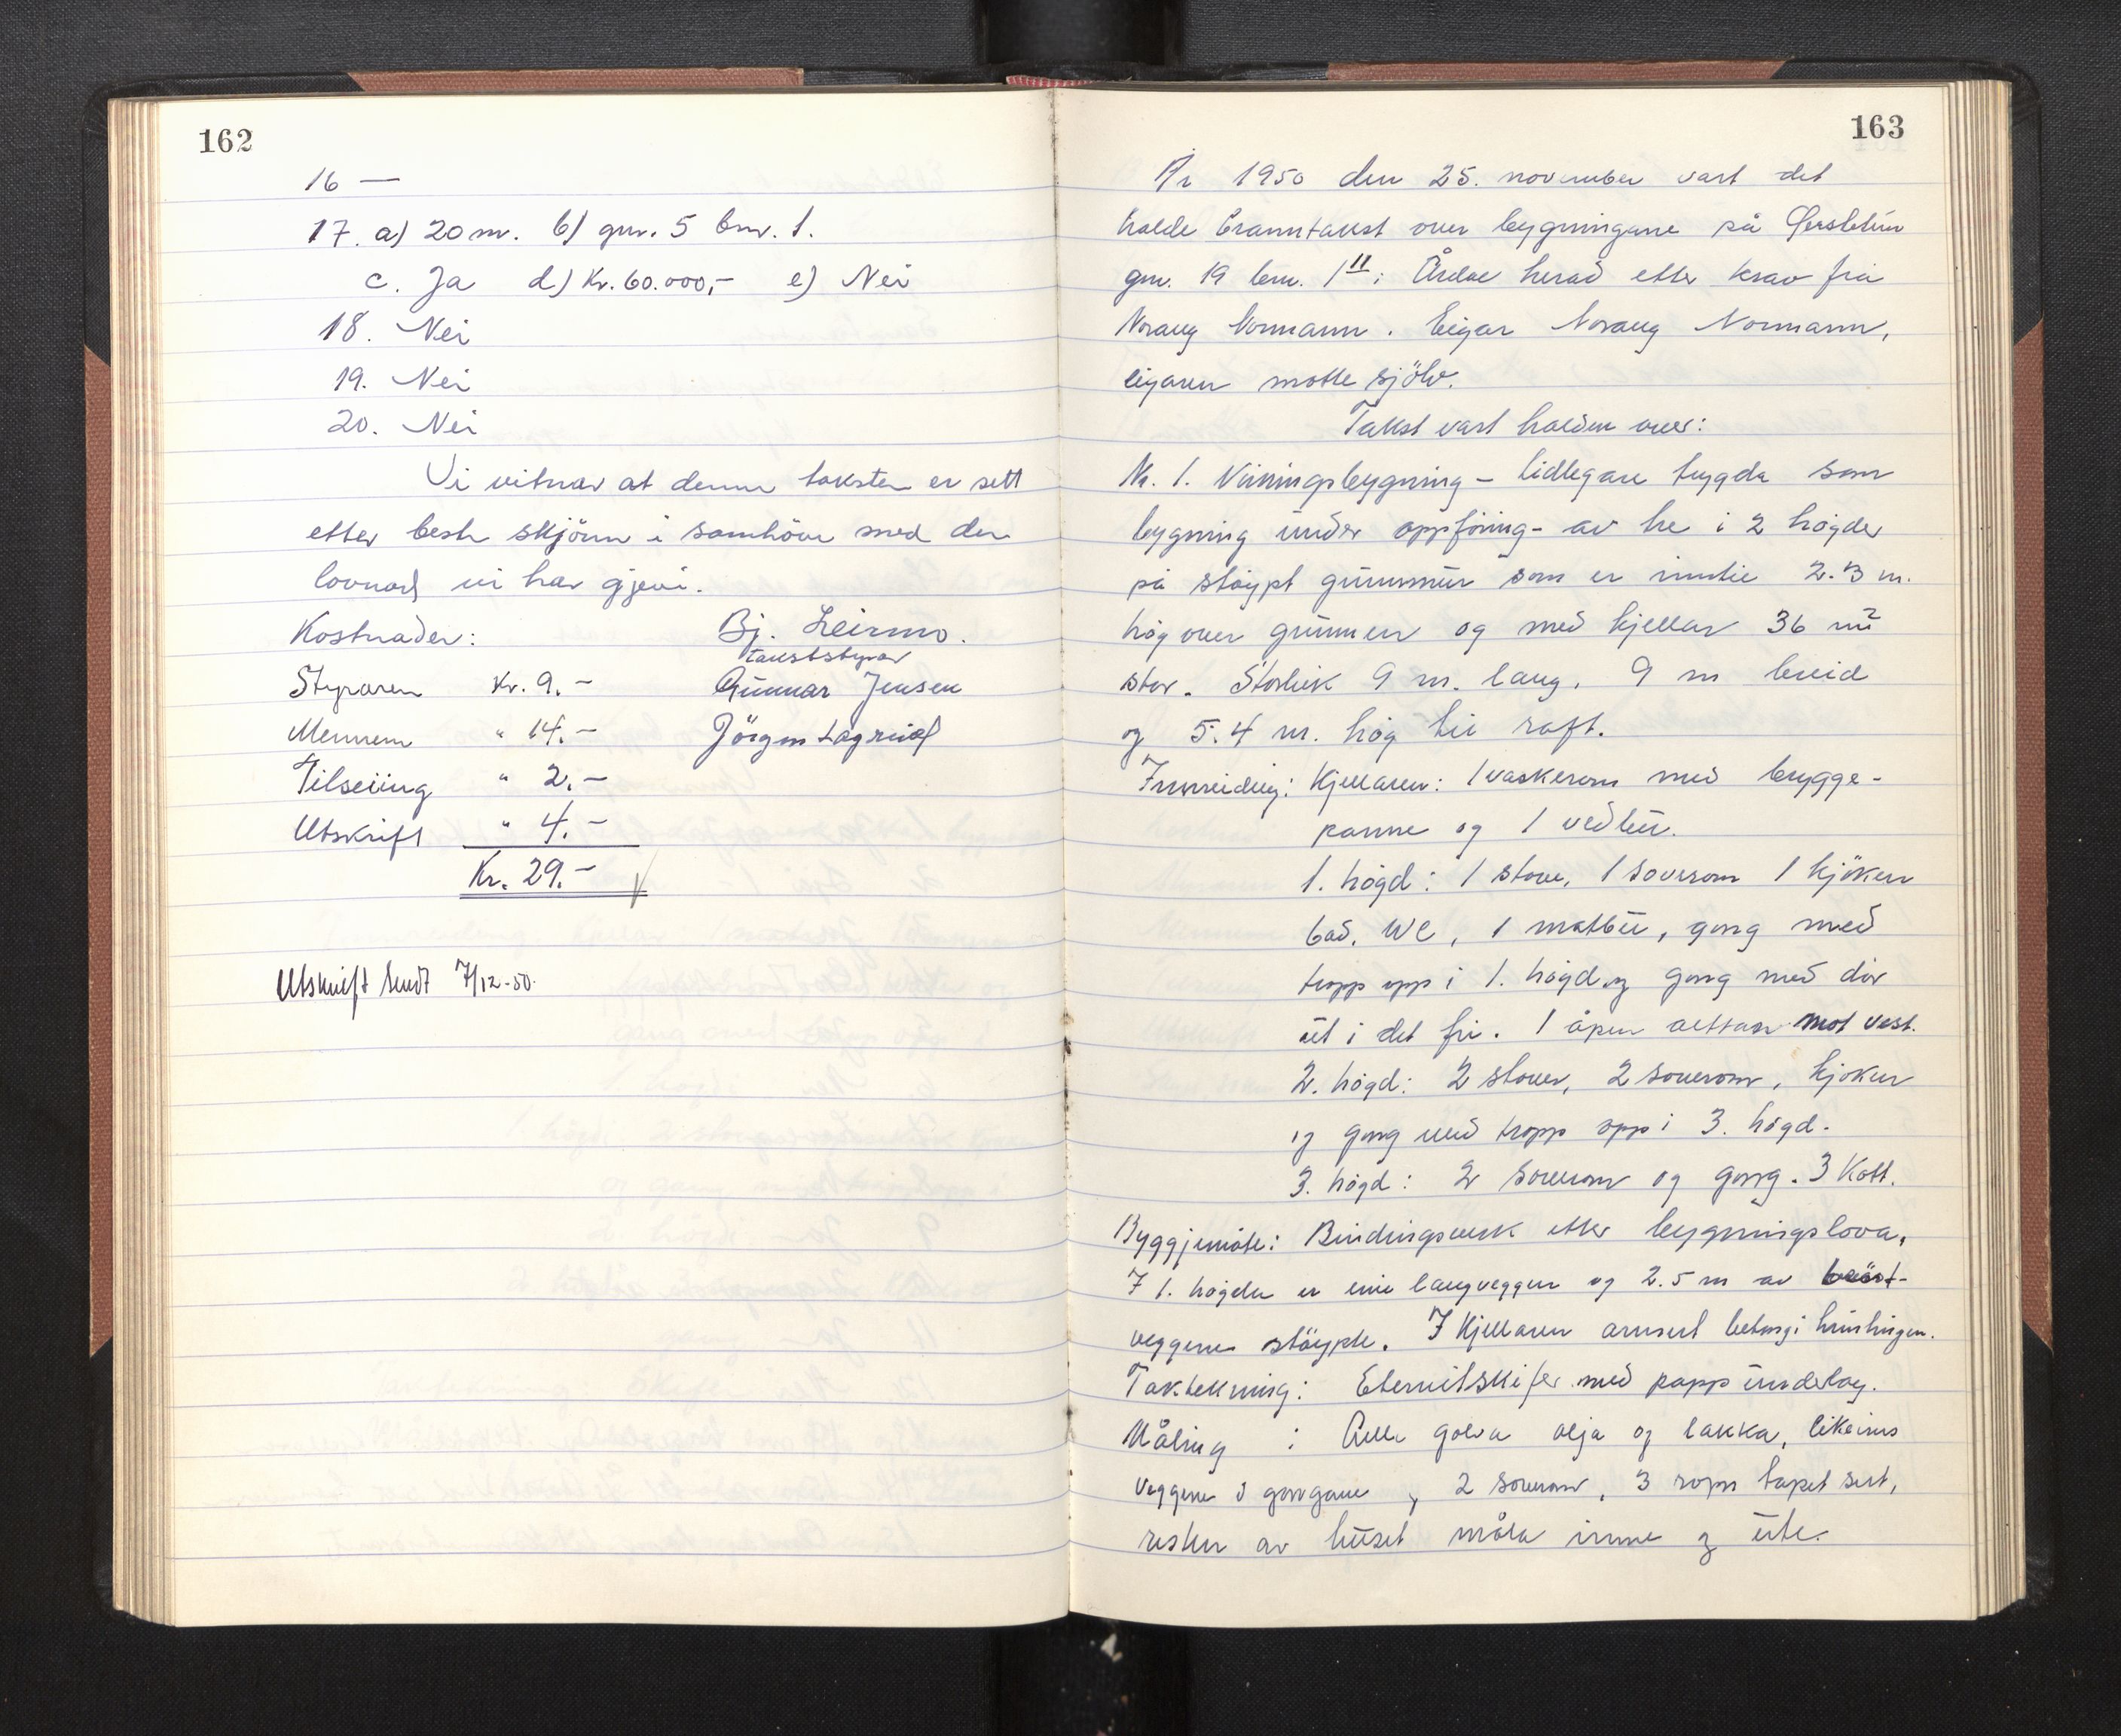 162
16 —
17. a) 20 m. b) gnr. 5 bnr. 1.
c. Ja d) Kr. 60.000,- e) Nei
18. Nei
19. Nei
20. Nei
Vi vitnar at denne taksten er sett
etter beste skjönn i samhöve med den
lovnad vi har gjevi.
Kostnader: Bj. Leirmo.
takststyrar
Styraren Kr. 9.- Gunnar Jensen
Mennene " 14.- Jörgen Lægreid
Tilseiing " 2.-
Utskrift " 4.-
Kr. 29.-
Utskrift sendt 7/12-50.
163
År 1950 den 25. november vart det
halde branntakst over bygningane på
gnr. 19 bnr. 1 11 i Årdal herad etter krav frå
Noraug Normann. Eigar Noraug Normann,
eigaren møtte sjölv.
Takst vart halden over:
Nr. 1. Våningsbygning - tidlegare trygda som
bygning under oppföring - av tre i 2 högder
på stöypt grunnmur som er inntil 2.3 m.
hög over grunnen og med kjellar 36 m2
stor. Storleik 9 m. lang, 9 m breid
og 5.4 m. hög til raft.
Innreiding: Kjellaren: 1 vaskerom med brygge-
panne og 1 vedbu.
1. högd: 1 stove, 1 soverom 1 kjöken
bad, WC, 1 matbu, gang med
tropp opp i 1. högd og gang med dör
ut i det fri. 1 åpen altan mot vest.
2. högd: 2 stover, 2 soverom, kjöken
og gang med tropp opp i 3. högd.
3. högd: 2 soverom og gang. 3 Kott.
Byggjemåte: Bindingsverk etter bygningslova.
I 1. högda er eine langveggen og 2.5 m av bröst-
veggene stöypte. I Kjellaren armert betong i himlingen.
Taktekning: Eternitskifer med papp underlag.
Måling : Alle golva olja og lakka, likeins
veggene i gangane og 2 soverom, 3 rom tapetsert,
resten av huset måla inne og ute.